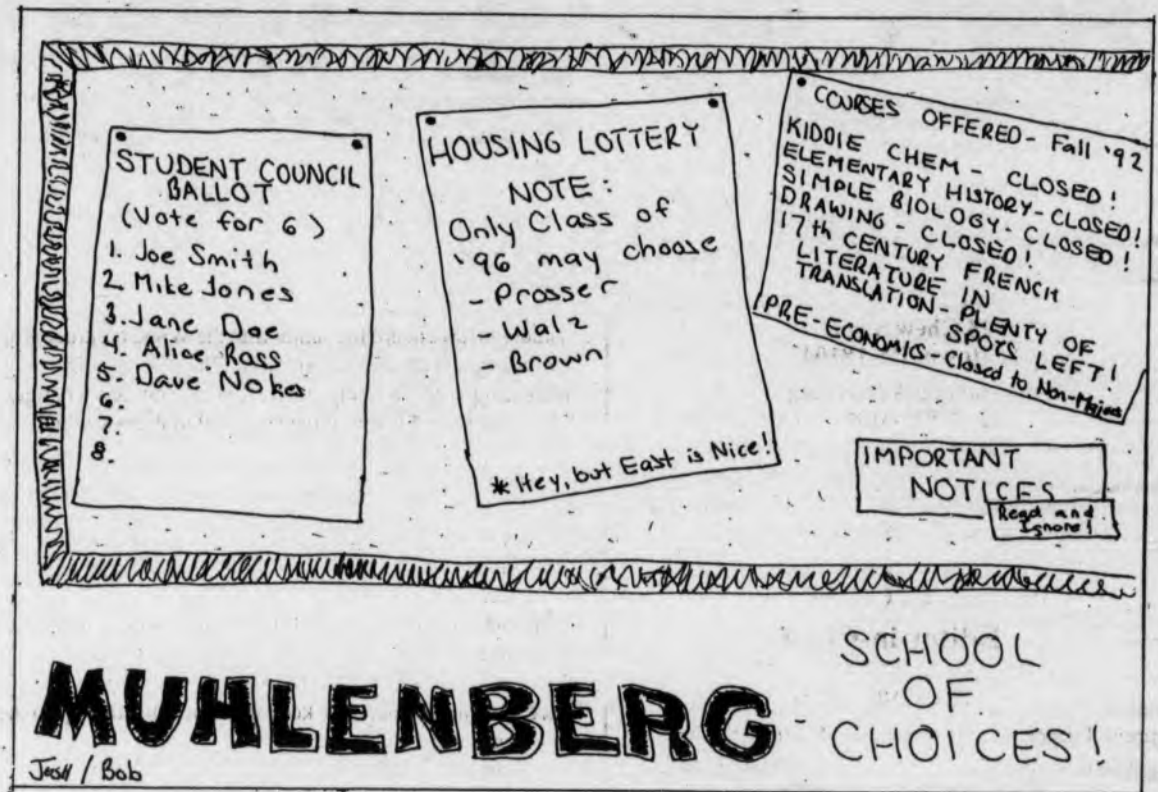 STUDENT COUNCIL
BALLOT
(Vote for 6)
1. Joe Smith
2. Mike Jones
3. Jane Doe
4. Alice Ross
5. Dave Nokes
6.
7.
8.
HOUSING LOTTERY
NOTE:
Only Class of
'96 may choose
- Prosser
- Walz
- Brown
* Hey, but East is Nice!
COURSES OFFERED - Fall '92
KIDDIE CHEM - CLOSED!
ELEMENTARY HISTORY - CLOSED!
SIMPLE BIOLOGY - CLOSED!
DRAWING - CLOSED!
17th CENTURY FRENCH
LITERATURE IN
TRANSLATION - PLENTY OF
SPOTS LEFT!
PRE-ECONOMICS - Closed to Non-Majors
IMPORTANT
NOTICES
Read and
Ignore!
MUHLENBERG -
SCHOOL
OF
CHOICES!
Josh / Bob